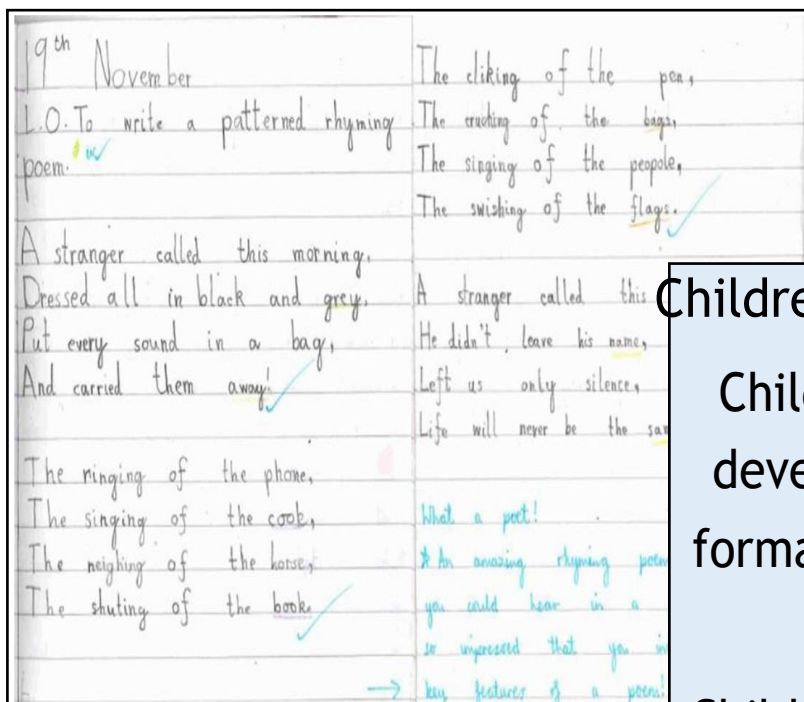 19th November
L.O. To write a patterned rhyming
poem.
A stranger called this morning.
Dressed all in black and grey.
Put every sound in a bag,
And carried them away!
The ringing of the phone,
The singing of the cook,
The neighing of the horse,
The shuting of the book.
The cliking of the pen,
The crushing of the bags,
The singing of the peopole,
The swishing of the flags.
A stranger called this
He didn't leave his name,
Left us only silence,
Life will never be the
What a poet!
* An amazing rhyming poem
you could hear in a
so impressed that you
key features of a poem!